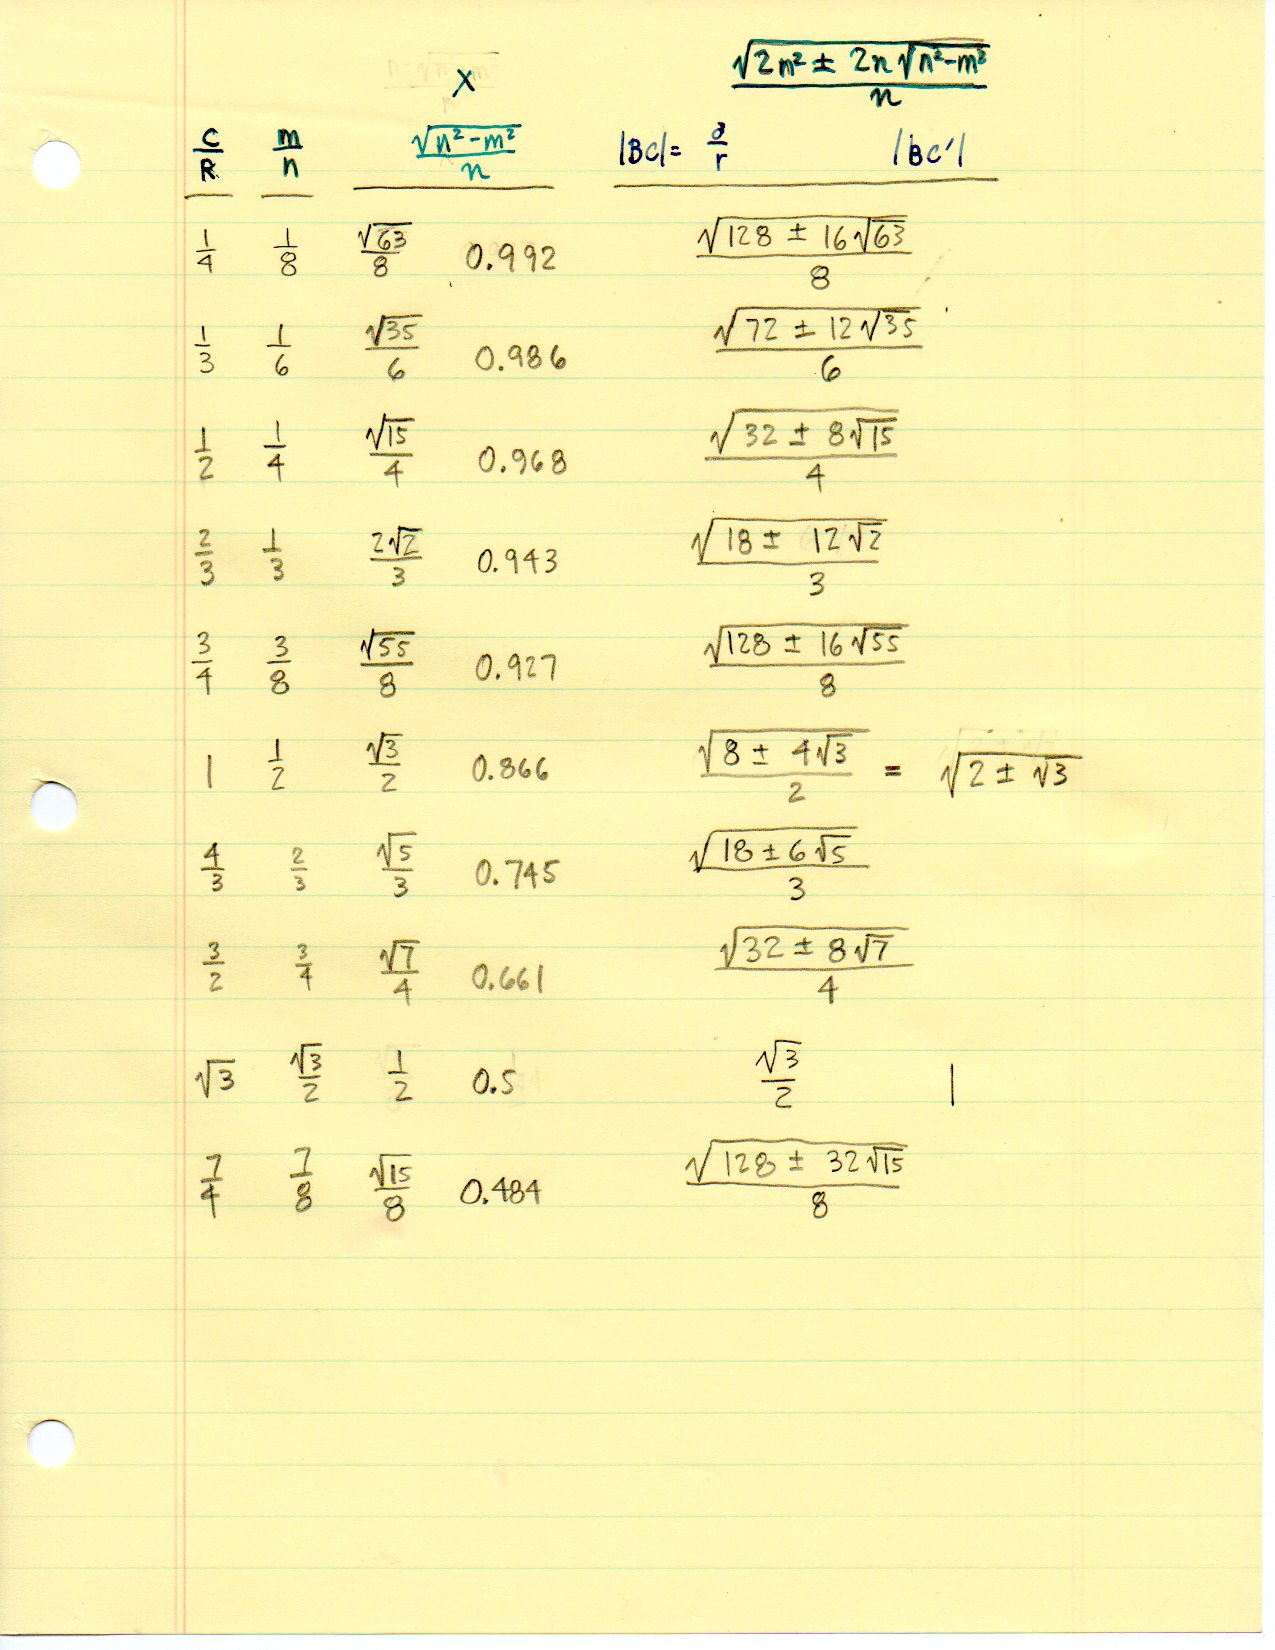 x √(2n² ± 2n√(n²-m²)) / n
c/R m/n √(n²-m²) / n |BC| = a/r |BC'|
1/4 1/8 √63/8 0.992 √(128 ± 16√63) / 8
1/3 1/6 √35/6 0.986 √(72 ± 12√35) / 6
1/2 1/4 √15/4 0.968 √(32 ± 8√15) / 4
2/3 1/3 2√2/3 0.943 √(18 ± 12√2) / 3
3/4 3/8 √55/8 0.927 √(128 ± 16√55) / 8
1 1/2 √3/2 0.866 √(8 ± 4√3) / 2 = √(2 ± √3)
4/3 2/3 √5/3 0.745 √(18 ± 6√5) / 3
3/2 3/4 √7/4 0.661 √(32 ± 8√7) / 4
√3 √3/2 1/2 0.5 √3/2 1
7/4 7/8 √15/8 0.484 √(128 ± 32√15) / 8